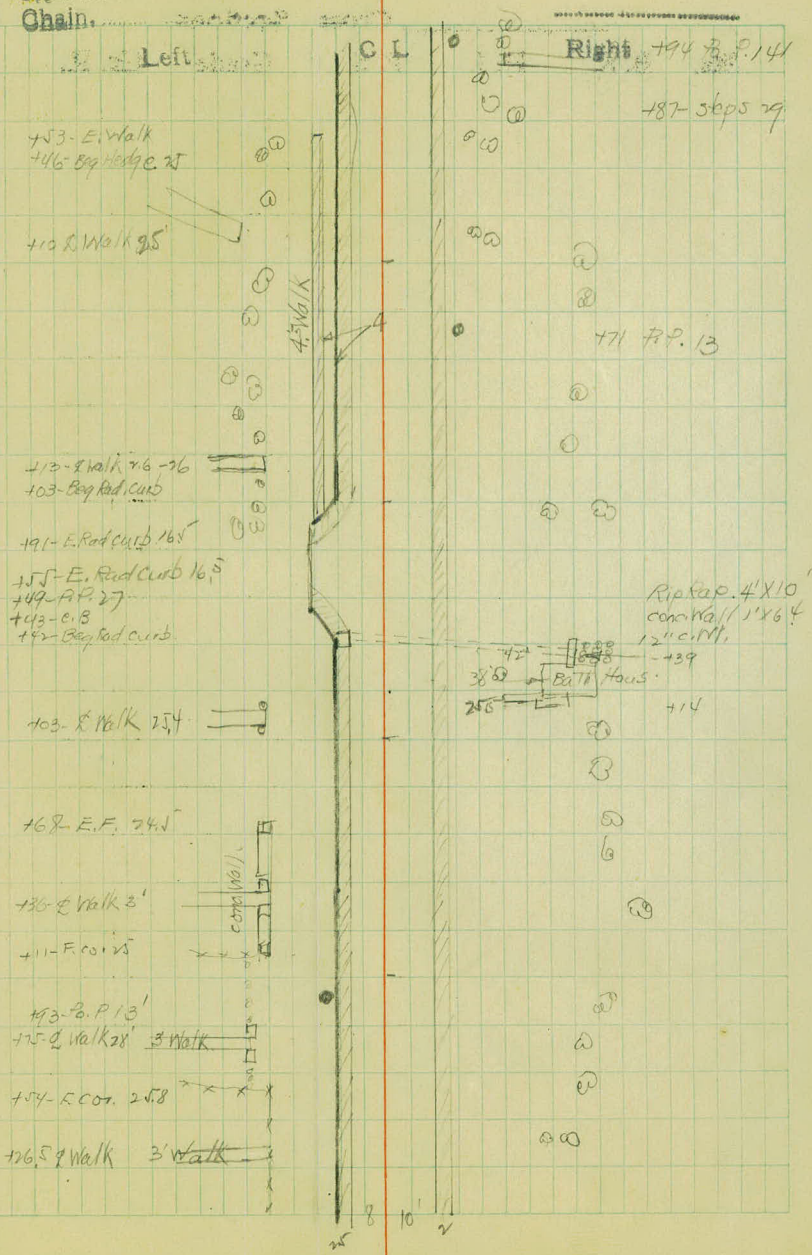 Chain.
Left
C L
Right
+94 P.P. 141
+87- steps 29
+53- E. Walk
+46- Beg Hedge 25
+10 ℄ Walk 25'
4.5' Walk
4
+71 P.P. 13
+13- ℄ Walk 26 -26
+03- Beg Rad. curb
+91- E. Rad curb 16.5
+55- E. Rad Curb 16.5
+49- P.P. 27
+43- C.B
+42- Beg Rad curb
Rip Rap. 4' X 10'
conc. Wall 1' X 6.4
12" C.M.
42'
+39
38
Bath Hous.
256
+14
+03- ℄ Walk 25.4
+68- E.F. 24.5
conc Wall.
+36- ℄ Walk 3'
+11- F. co. 25
+93- Po. P 13'
+75- ℄ Walk 28' 3' Walk
+54- F. cor. 25.8
+26.5 ℄ Walk 3' Walk
8 10'
25 2